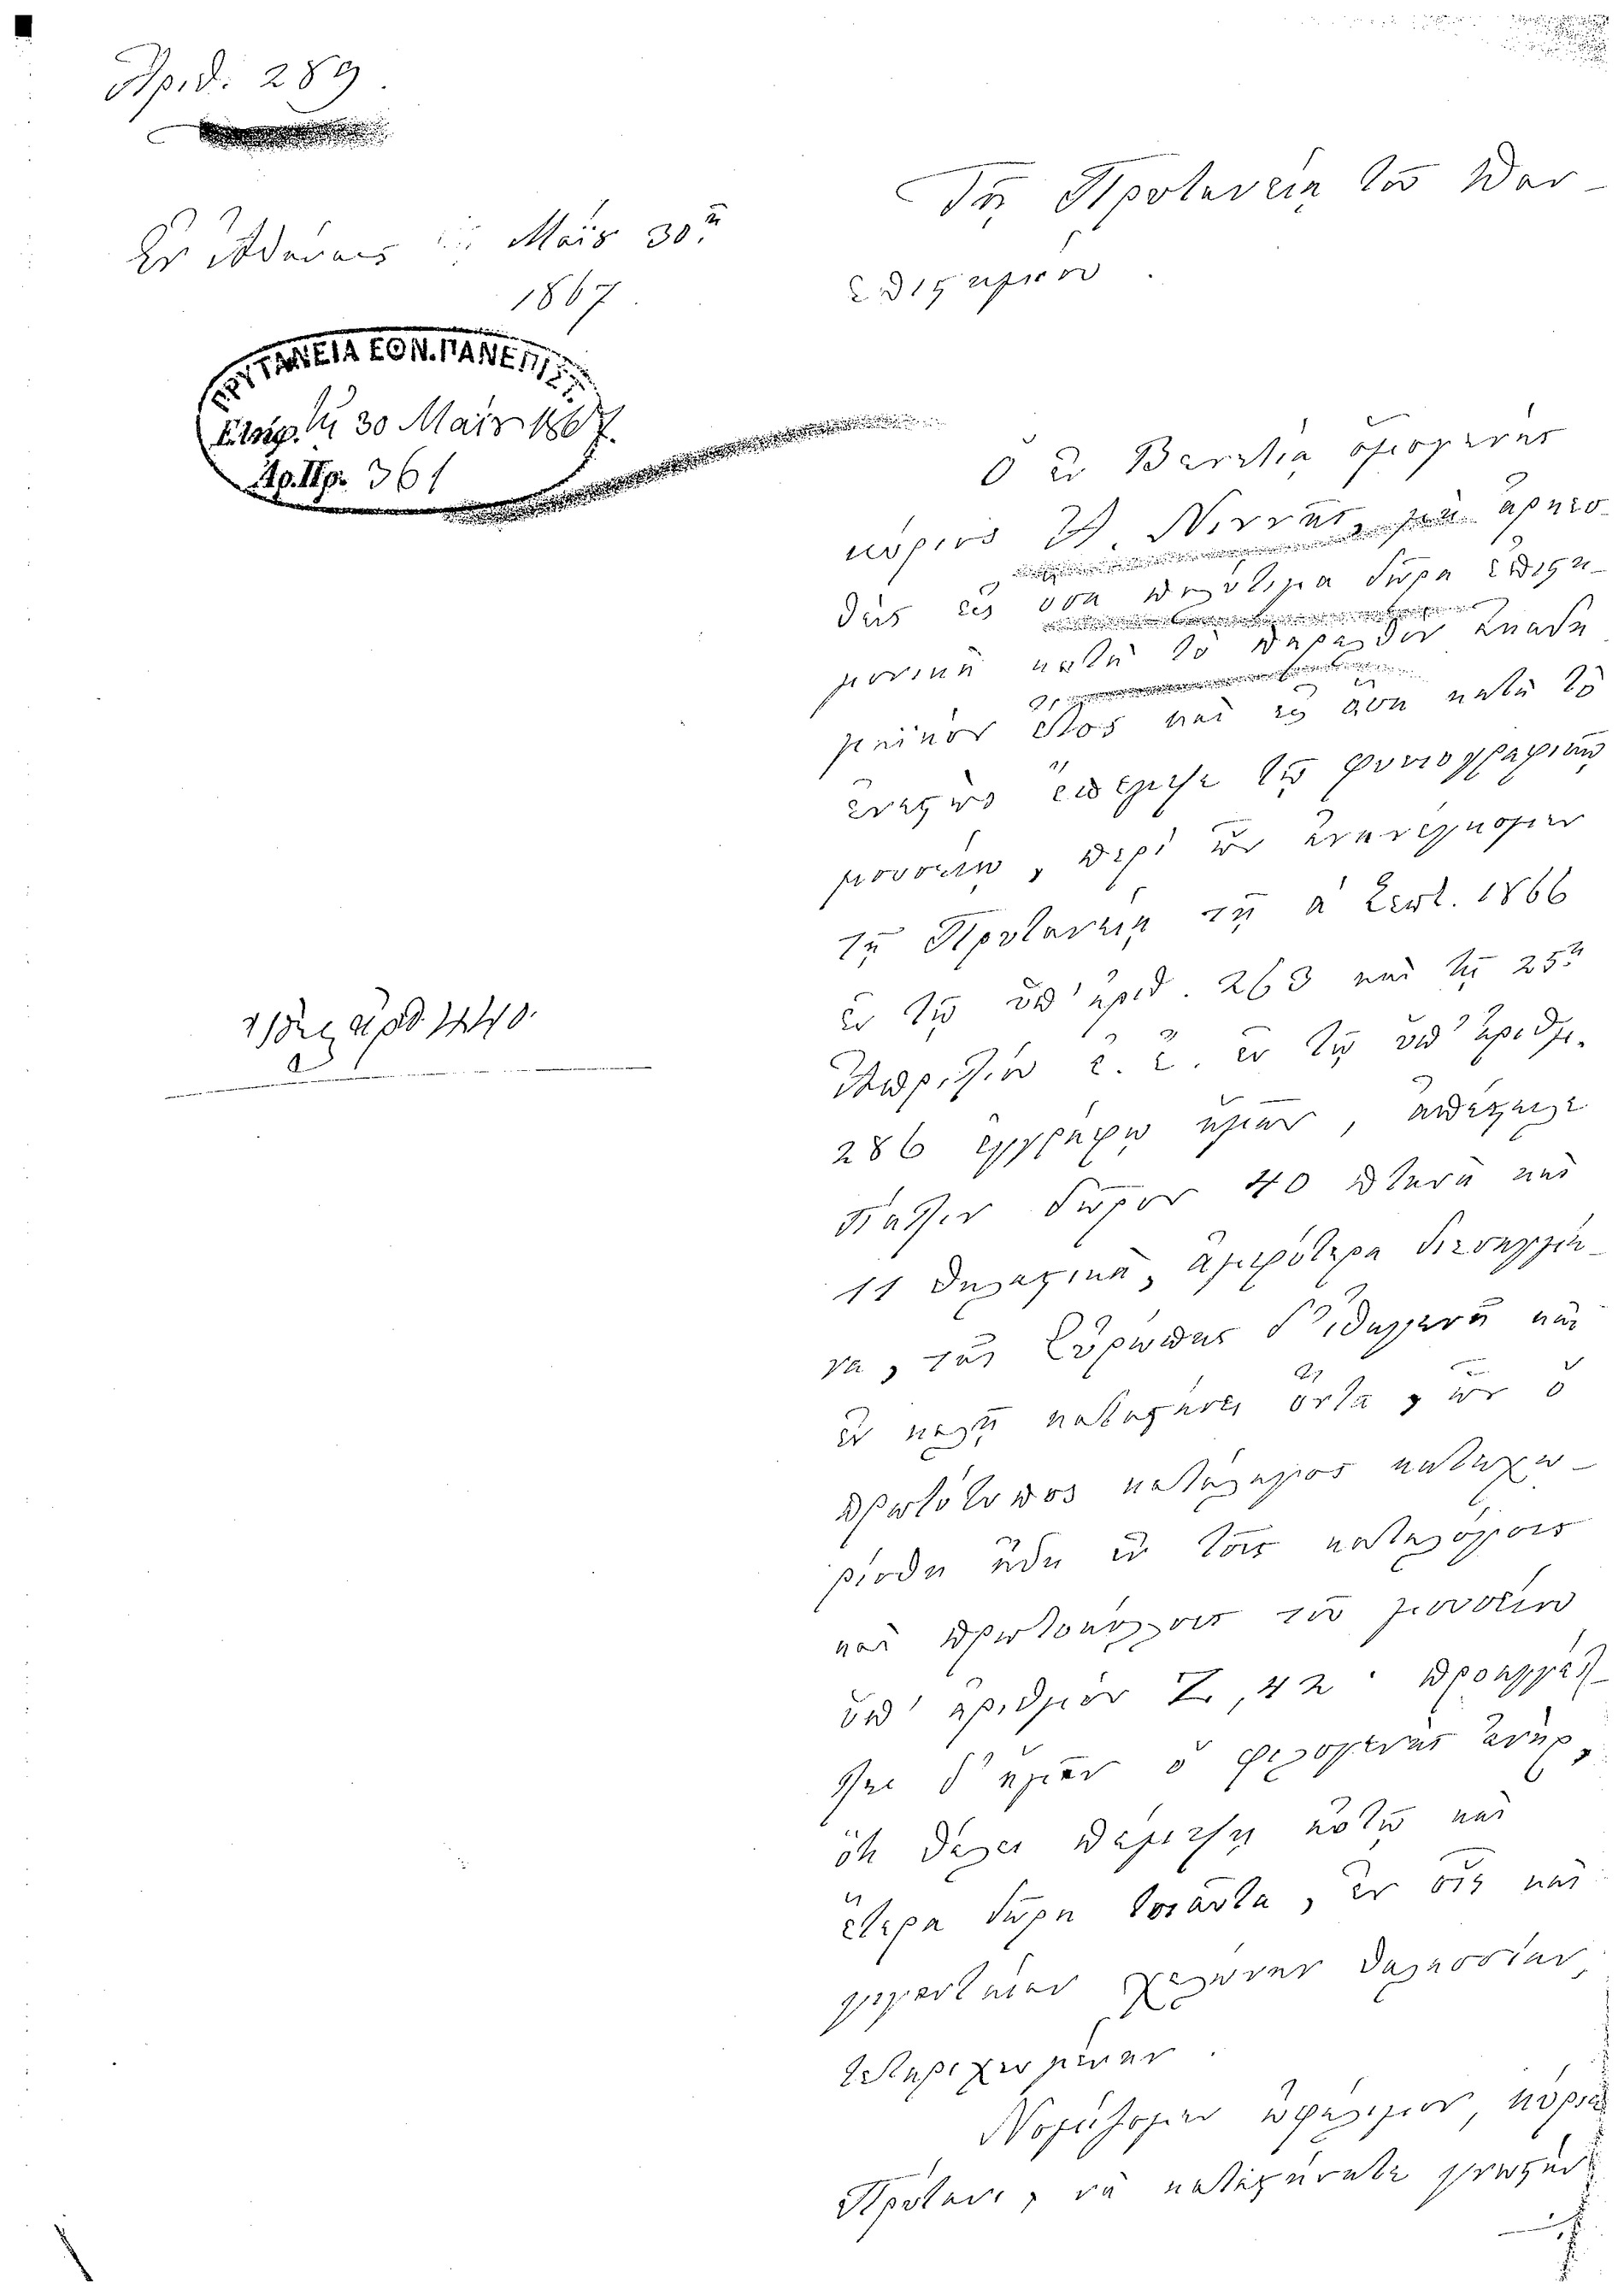 Ἀριθ. 289.
Ἐν Ἀθήναις τῇ Μαΐου 30ῃ
1867.
ΠΡΥΤΑΝΕΙΑ ΕΘΝ. ΠΑΝΕΠΙΣΤ.
Ἐλήφ. τῇ 30 Μαΐου 1867.
Ἀρ. Πρ. 361
ἀριθ. 1440.
Τῇ Πρυτανείᾳ τοῦ Παν-
επιστημίου.
Ὁ ἐν Βενετίᾳ ὁμογενὴς
κύριος Νιννῆς, μὴ ἀρκεσ-
θεὶς εἰς ὅσα πολύτιμα δῶρα ἐπιστη-
μονικὰ κατὰ τὸ παρελθὸν ἀκαδη-
μαϊκὸν ἔτος καὶ εἰς ὅσα κατὰ τὸ
ἐνεστὼς ἔπεμψε τῷ φυσιογραφικῷ
μουσείῳ, περὶ ὧν ἀνηνέγκομεν
τῇ Πρυτανείᾳ τῇ α΄ Σεπτ. 1866
ἐν τῷ ὑπ' ἀριθ. 263 καὶ τῇ 25ῃ
Ἀπριλίου ἐ. ἔ. ἐν τῷ ὑπ' ἀριθμ.
286 ἐγγράφῳ ἡμῶν, ἀπέστειλε
πάλιν δῶρον 40 πτηνὰ καὶ
11 θηλαστικὰ, ἀμφότερα
τῆς Εὐρώπης ἰθαγενῆ καὶ
ἐν καλῇ καταστάσει ὄντα, ὧν ὁ
πρωτότυπος κατάλογος κατεχω-
ρίσθη ἤδη ἐν τοῖς καταλόγοις
καὶ πρωτοκόλλοις τοῦ μουσείου
ὑπ' ἀριθμὸν Ζ, 42· προαγγέλ-
λει δ' ἡμῖν ὁ φιλογενὴς ἀνὴρ,
ὅτι θέλει πέμψῃ αὐτῷ καὶ
ἕτερα δῶρα τοιαῦτα, ἐν οἷς καὶ
γιγαντιαίαν χελώνην θαλασσίαν,
τεταριχευμένην.
Νομίζομεν ὠφέλιμον, κύριε
Πρύτανι, νὰ καταστήσητε γνωστὴν